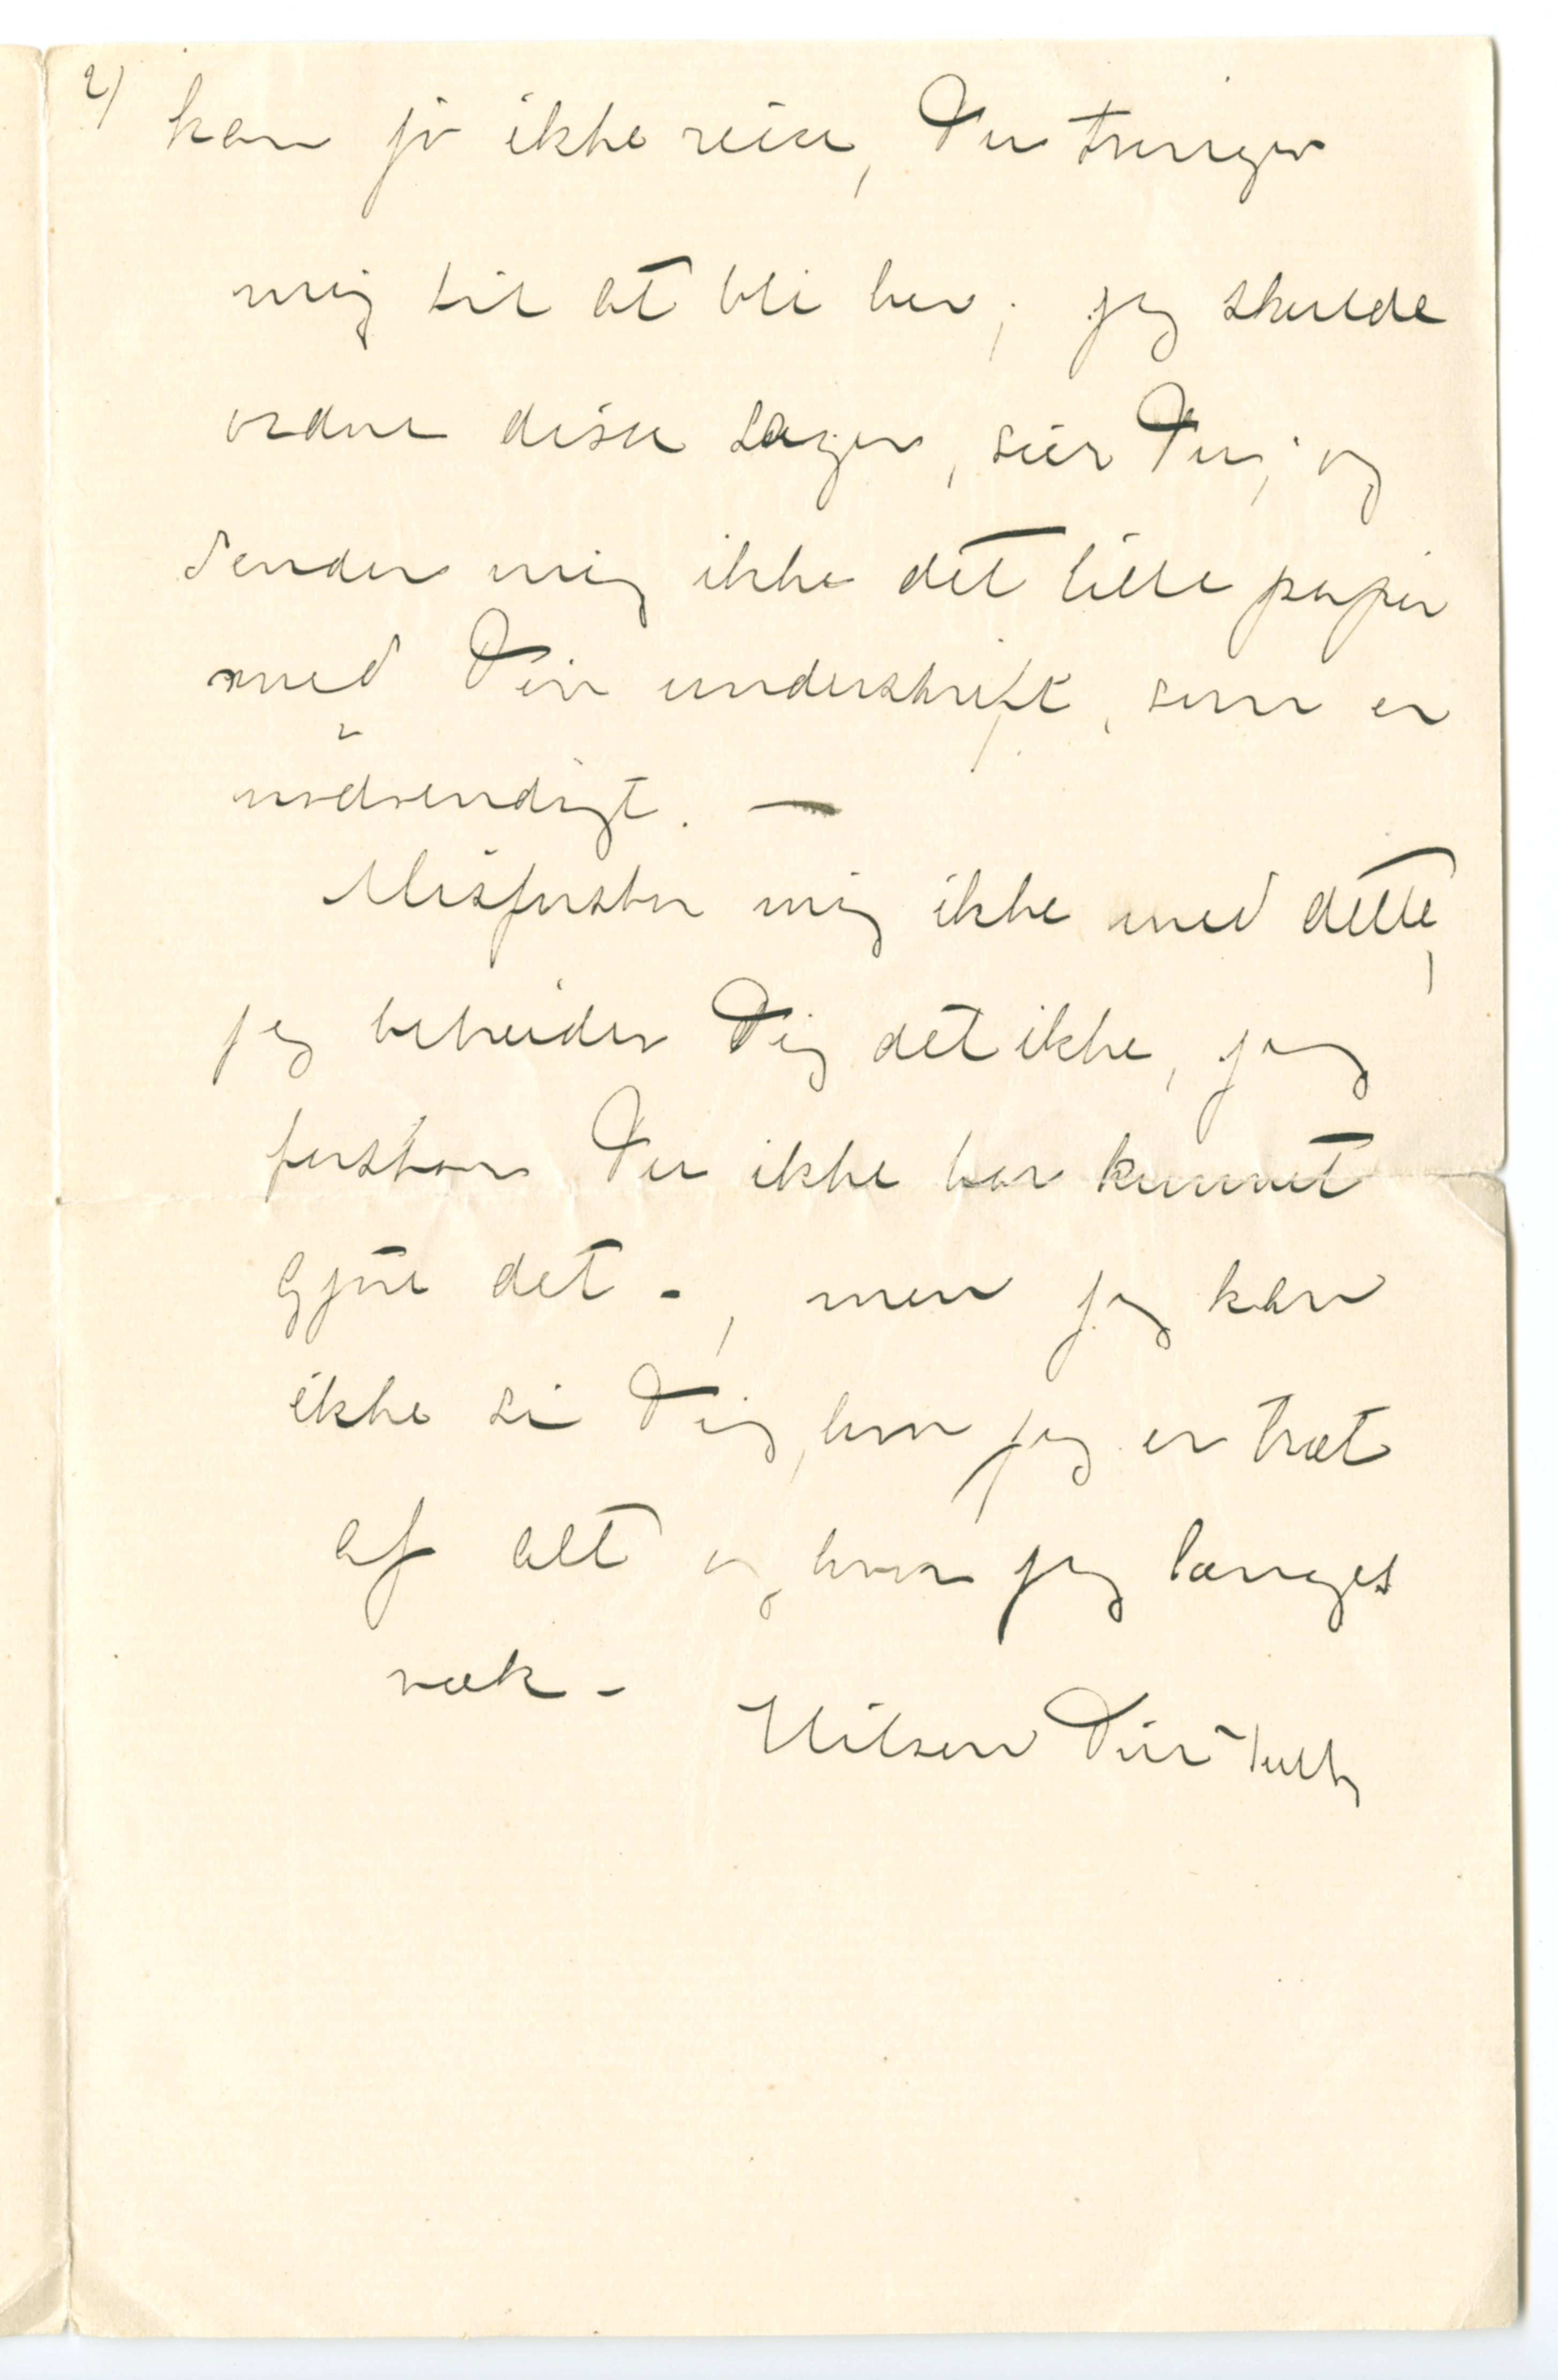 2/
kan jo ikke reise, Du tvinger
mig til at bli her; jeg skulde
ordne disse sager, sier Du; og
sender mig ikke det lille papir
med Din underskrift, som er
nödvendigt. —
Misforstaa mig ikke med dette,
jeg bebreider Dig det ikke, jeg
forstaar Du ikke har kunnet
gjøre det –, men jeg kan
ikke si Dig, hvor jeg er træt
af alt og hvor jeg længes
væk –
Hilsen Din Tulla